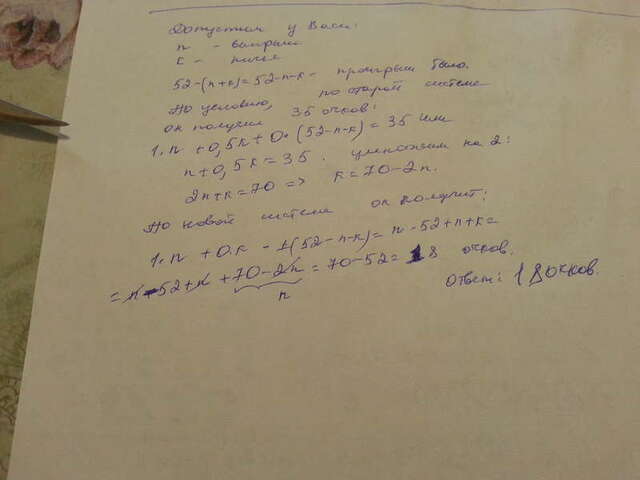 Допустим у Васи:
n - выигрыш
k - ничья
52-(n+k)=52-n-k - проигрыш было.
По условию, по старой системе
он получил 35 очков:
1·n + 0,5k + 0·(52-n-k) = 35 или
n+0,5k=35. умножим на 2:
2n+k=70 => k=70-2n.
По новой системе он получит:
1·n + 0·k - 1(52-n-k) = n-52+n+k=
= n-52+n+70-2n = 70-52 = 18 очков.
n
Ответ: 18 очков.